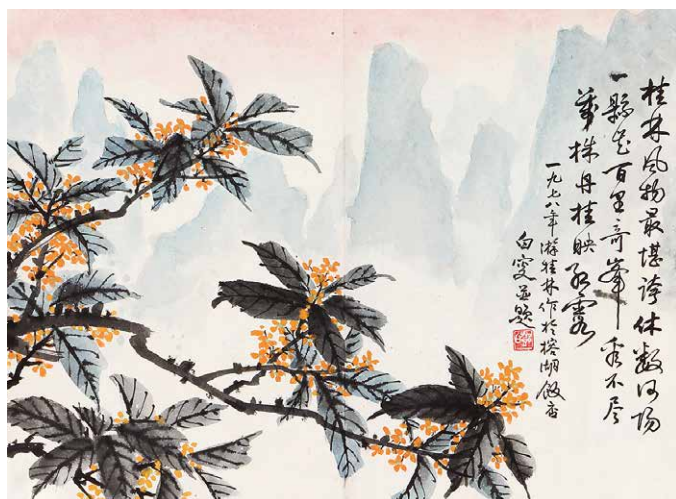 桂林風物最堪誇休數河陽
一縣花百里奇峯看不尽
萬株丹桂映紅霞
一九七八年游桂林作於榕湖飯店
白雯並題